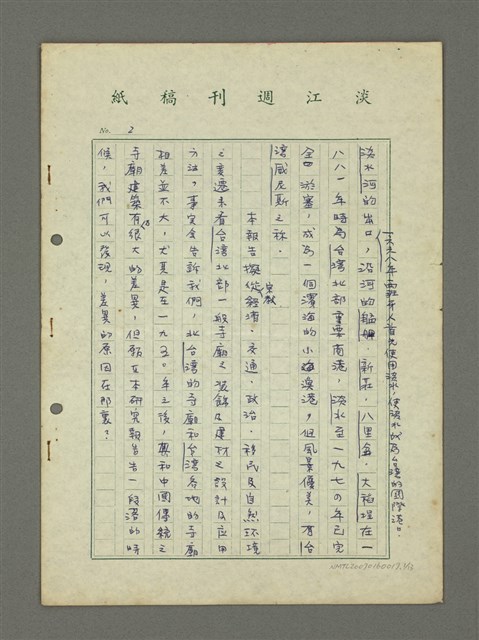 淡江週刊稿紙
No. 2
一六二八年西班牙人首先使用淡水,使淡水成為台灣的國際港。
淡水河的出口,沿河的艋舺、新莊、八里坌、大稻埕在一
八八一年時為台灣北部重要商港,淡水至一九七〇年已完
全淤塞,成為一個濱海的小漁港,但風景優美,有台
灣威尼斯之稱。
本報告擬從宗教、經濟、交通、政治、移民及自然環境
之變遷來看台灣北部一般寺廟之裝飾及建材之設計及應用
方法,事實会告訴我們,北台灣的寺廟和台灣各地的寺廟
相差並不大,尤其是在一九五〇年之後,與和中國傳統之
寺廟建築有很大的差異,但願在本研究報告告一段落的時
候,我們可以發現,差異的原因在那裏?